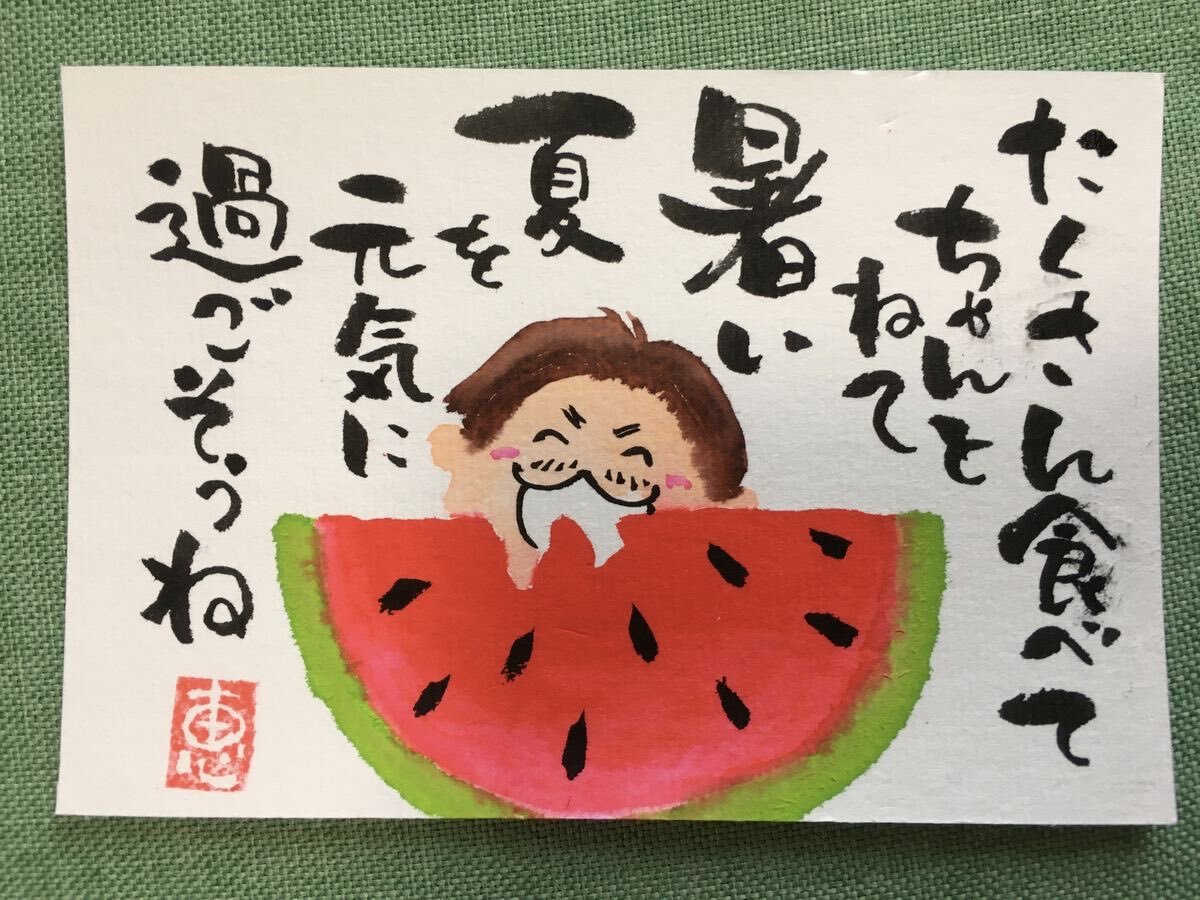 たくさん食べて
ちゃんと
ねて
暑い
夏
を
元気に
過ごそうね
恵